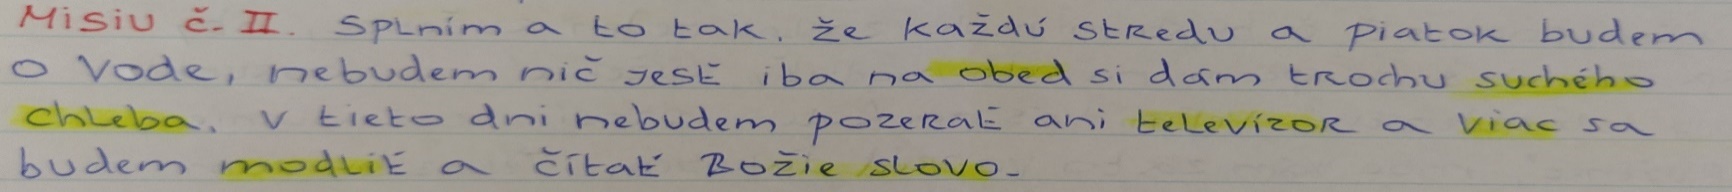 Misiu č. II. splním a to tak, že každú stredu a piatok budem
o vode, nebudem nič jesť iba na obed si dám trochu suchého
chleba. V tieto dni nebudem pozerať ani televízor a viac sa
budem modliť a čítať Božie slovo.